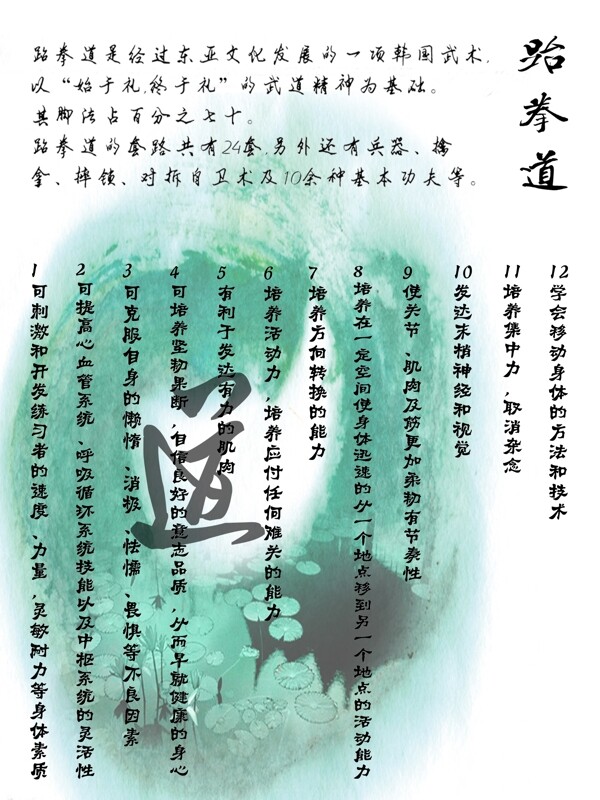 跆拳道
跆拳道是经过东亚文化发展的一项韩国武术,
以“始于礼,终于礼”的武道精神为基础。
其脚法占百分之七十。
跆拳道的套路共有24套,另外还有兵器、擒
拿、摔锁、对拆自卫术及10余种基本功夫等。
1可刺激和开发练习者的速度、力量,灵敏耐力等身体素质
2可提高心血管系统、呼吸循环系统技能以及中枢系统的灵活性
3可克服自身的懒惰、消极、怯懦、畏惧等不良因素
4可培养坚韧果断,自信良好的意志品质,从而早就健康的身心
5有利于发达有力的肌肉
6培养活动力,培养应付任何难关的能力
7培养方向转换的能力
8培养在一定空间使身体迅速的从一个地点移到另一个地点的活动能力
9使关节、肌肉及筋更加柔韧有节奏性
10发达末梢神经和视觉
11培养集中力,取消杂念
12学会移动身体的方法和技术
道